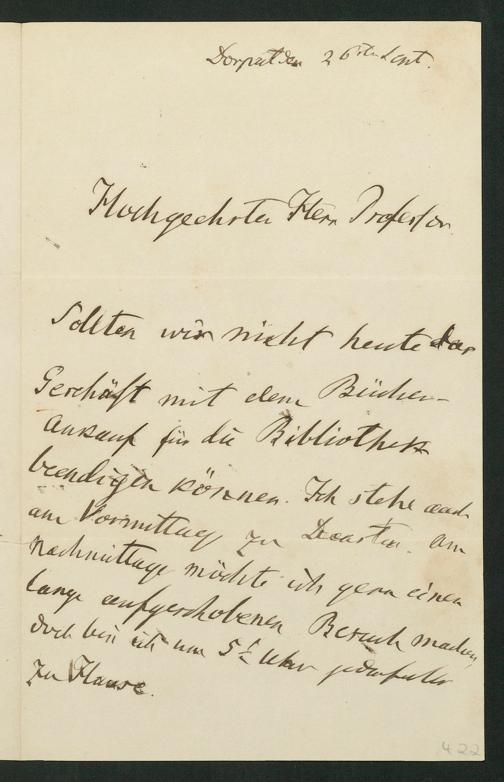 Dorpat den 26sten Sept.
Hochgeehrter Herr Professor
Sollten wir nicht heute das
Geschäft mit dem Bücher-
Ankauf für die Bibliothek
beendigen können. Ich stehe auch
am Vormittag zu Am
Nachmittage möchte ich gern einen
lange aufgeschobenen Besuch machen
doch bin ich um 5½ Uhr jedenfalls
zu Hause.
422